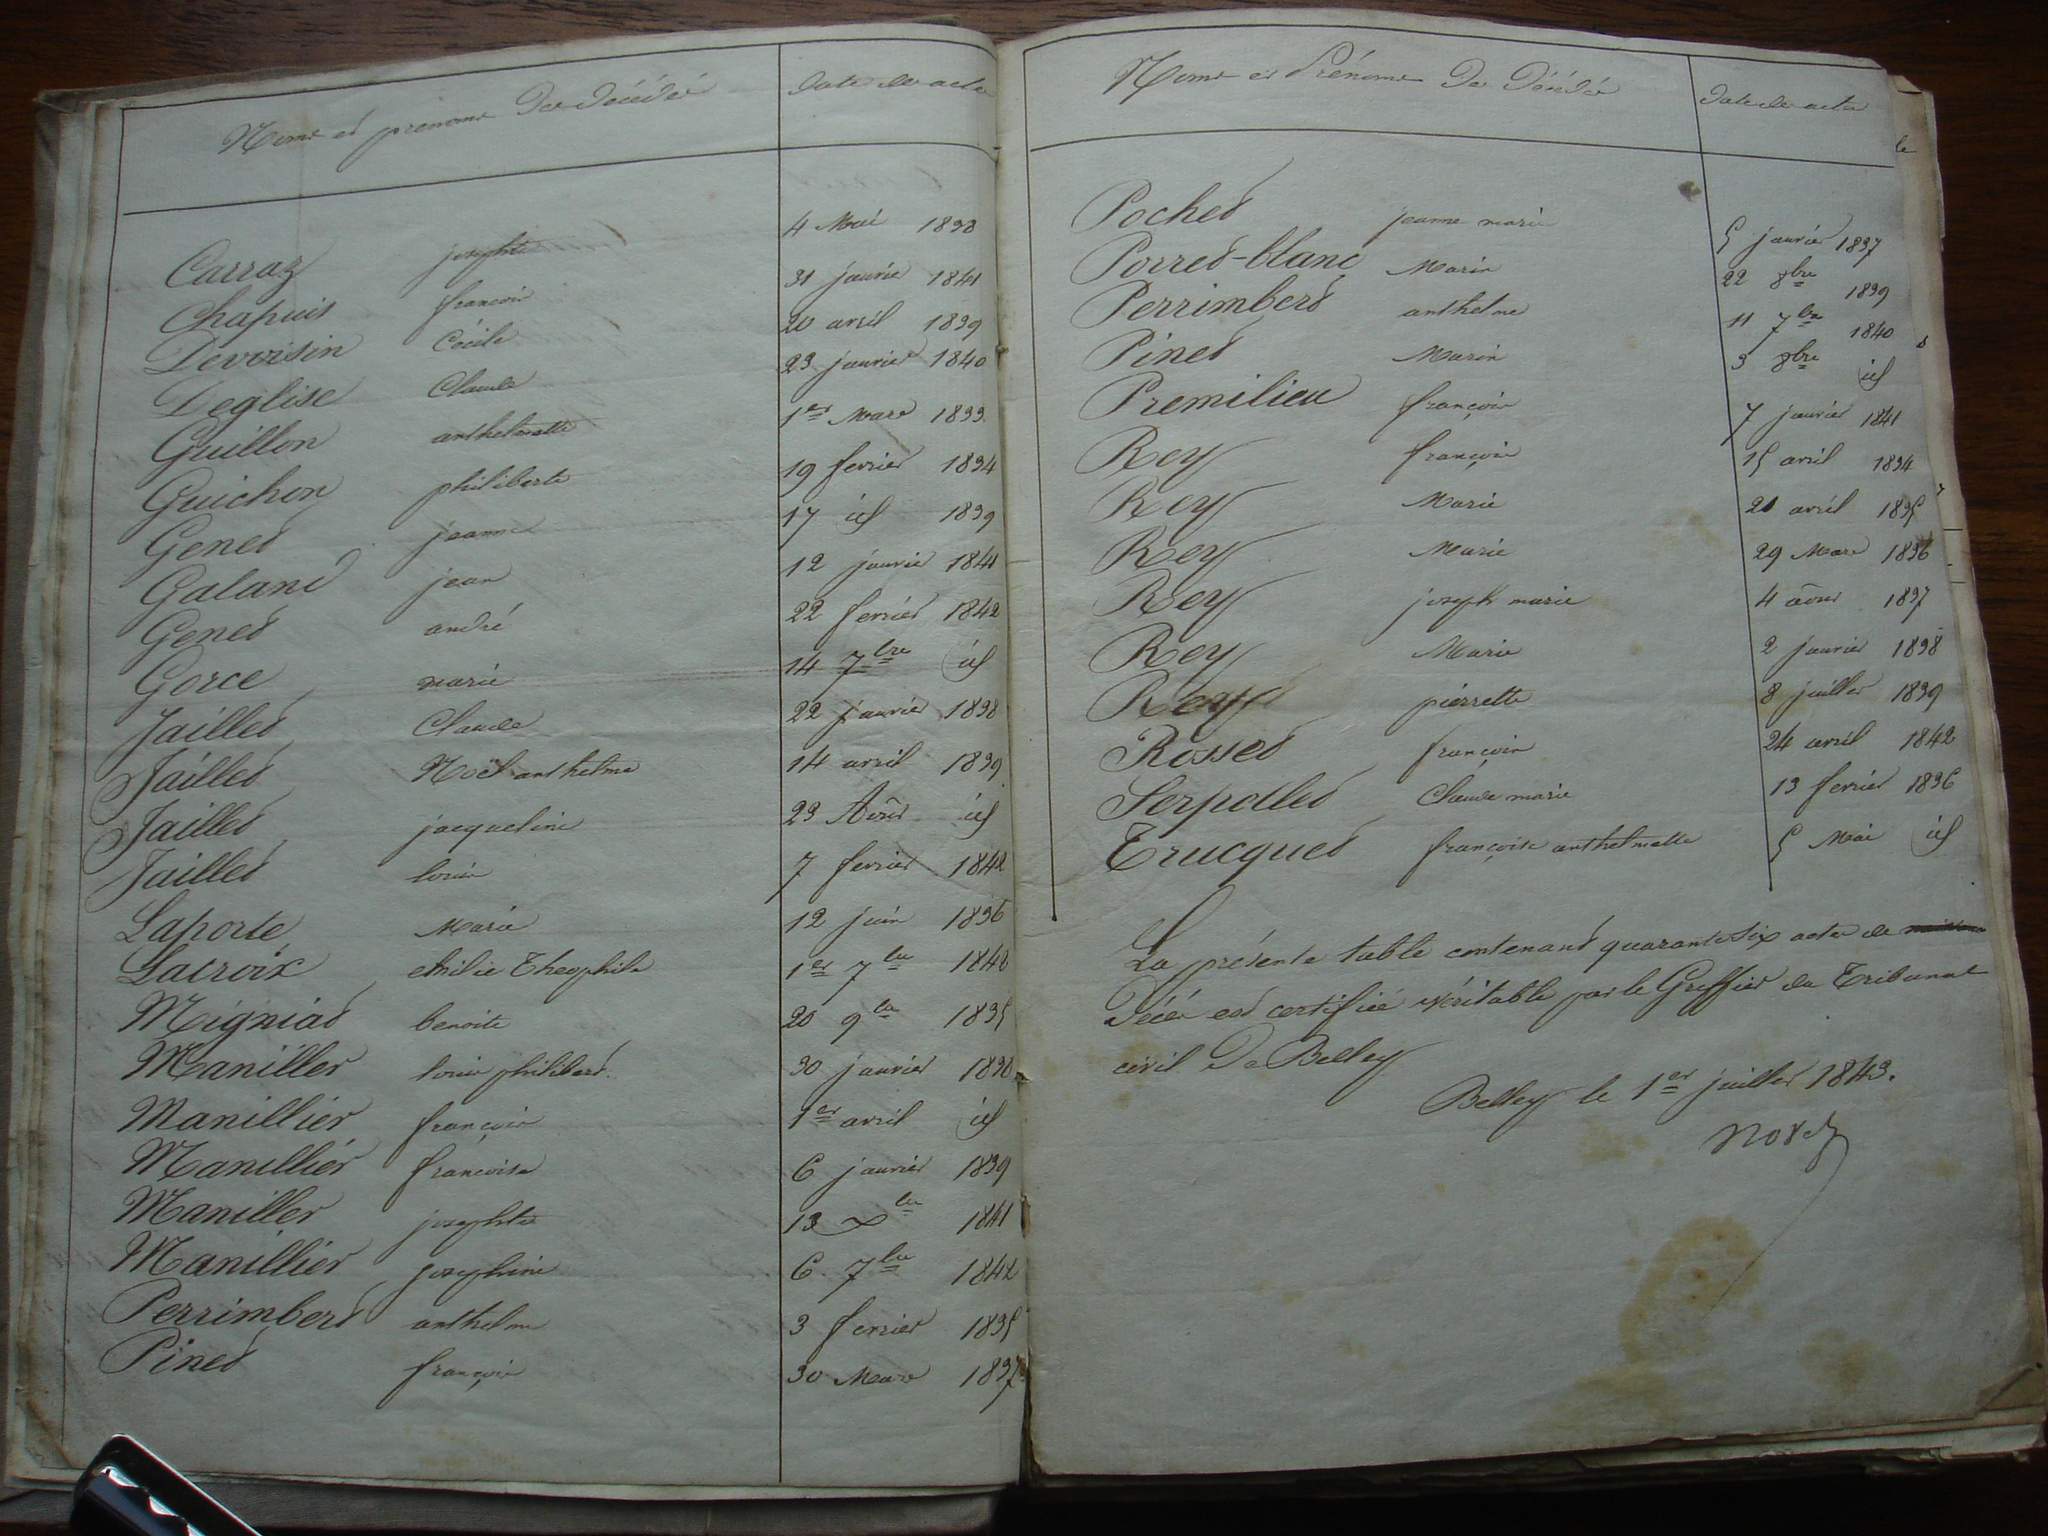 Noms et prénoms des décédés Date des actes
Carraz josephte 4 Mai 1838
Chapuis françois 31 janvier 1841
Devoisin Cécile 20 avril 1839
Deglise Claude 23 janvier 1840
Guillon anthelmette 1er Mars 1833
Guichon philiberte 19 fevrier 1834
Genet jeanne 17 id 1839
Galand jean 12 janvier 1841
Genet andré 22 fevrier 1842
Gorce marie 14 7bre id
Jaillet Claude 22 janvier 1838
Jaillet Noël anthelme 14 avril 1839
Jaillet jacqueline 23 Août id
Jaillet louis 7 fevrier 1842
Laporte Marie 12 juin 1836
Lacroix emilie Theophile 1er 7bre 1842
Migniat benoite 20 9bre 1835
Maniller louis philibert 30 janvier 1838
Manillier françois 1er avril id
Manillier françoise 6 janvier 1839
Maniller josephte 13 Xbre 1841
Manillier josephine 6 7bre 1842
Perrimbert anthelme 3 fevrier 1835
Pinet françois 30 Mars 1837
Noms et Prénoms des Décédés Date des actes
Pochet jeanne marie 5 janvier 1837
Porret-blanc Marie 22 8bre 1839
Perrimbert anthelme 11 7bre 1840
Pinet Marie 3 8bre id
Premilieu françois 7 janvier 1841
Rey françois 15 avril 1834
Rey Marie 21 avril 1835
Rey Marie 29 Mars 1836
Rey joseph marie 4 août 1837
Rey Marie 2 janvier 1838
Rey pierrette 8 juillet 1839
Rosset françois 24 avril 1842
Serpollet Claude marie 13 fevrier 1836
Trucquet françoise anthelmette 5 Mai id
La présente table contenant quarante six actes de
Décès est certifiée véritable par le Greffier du Tribunal
civil De Belley
Belley le 1er juillet 1843.